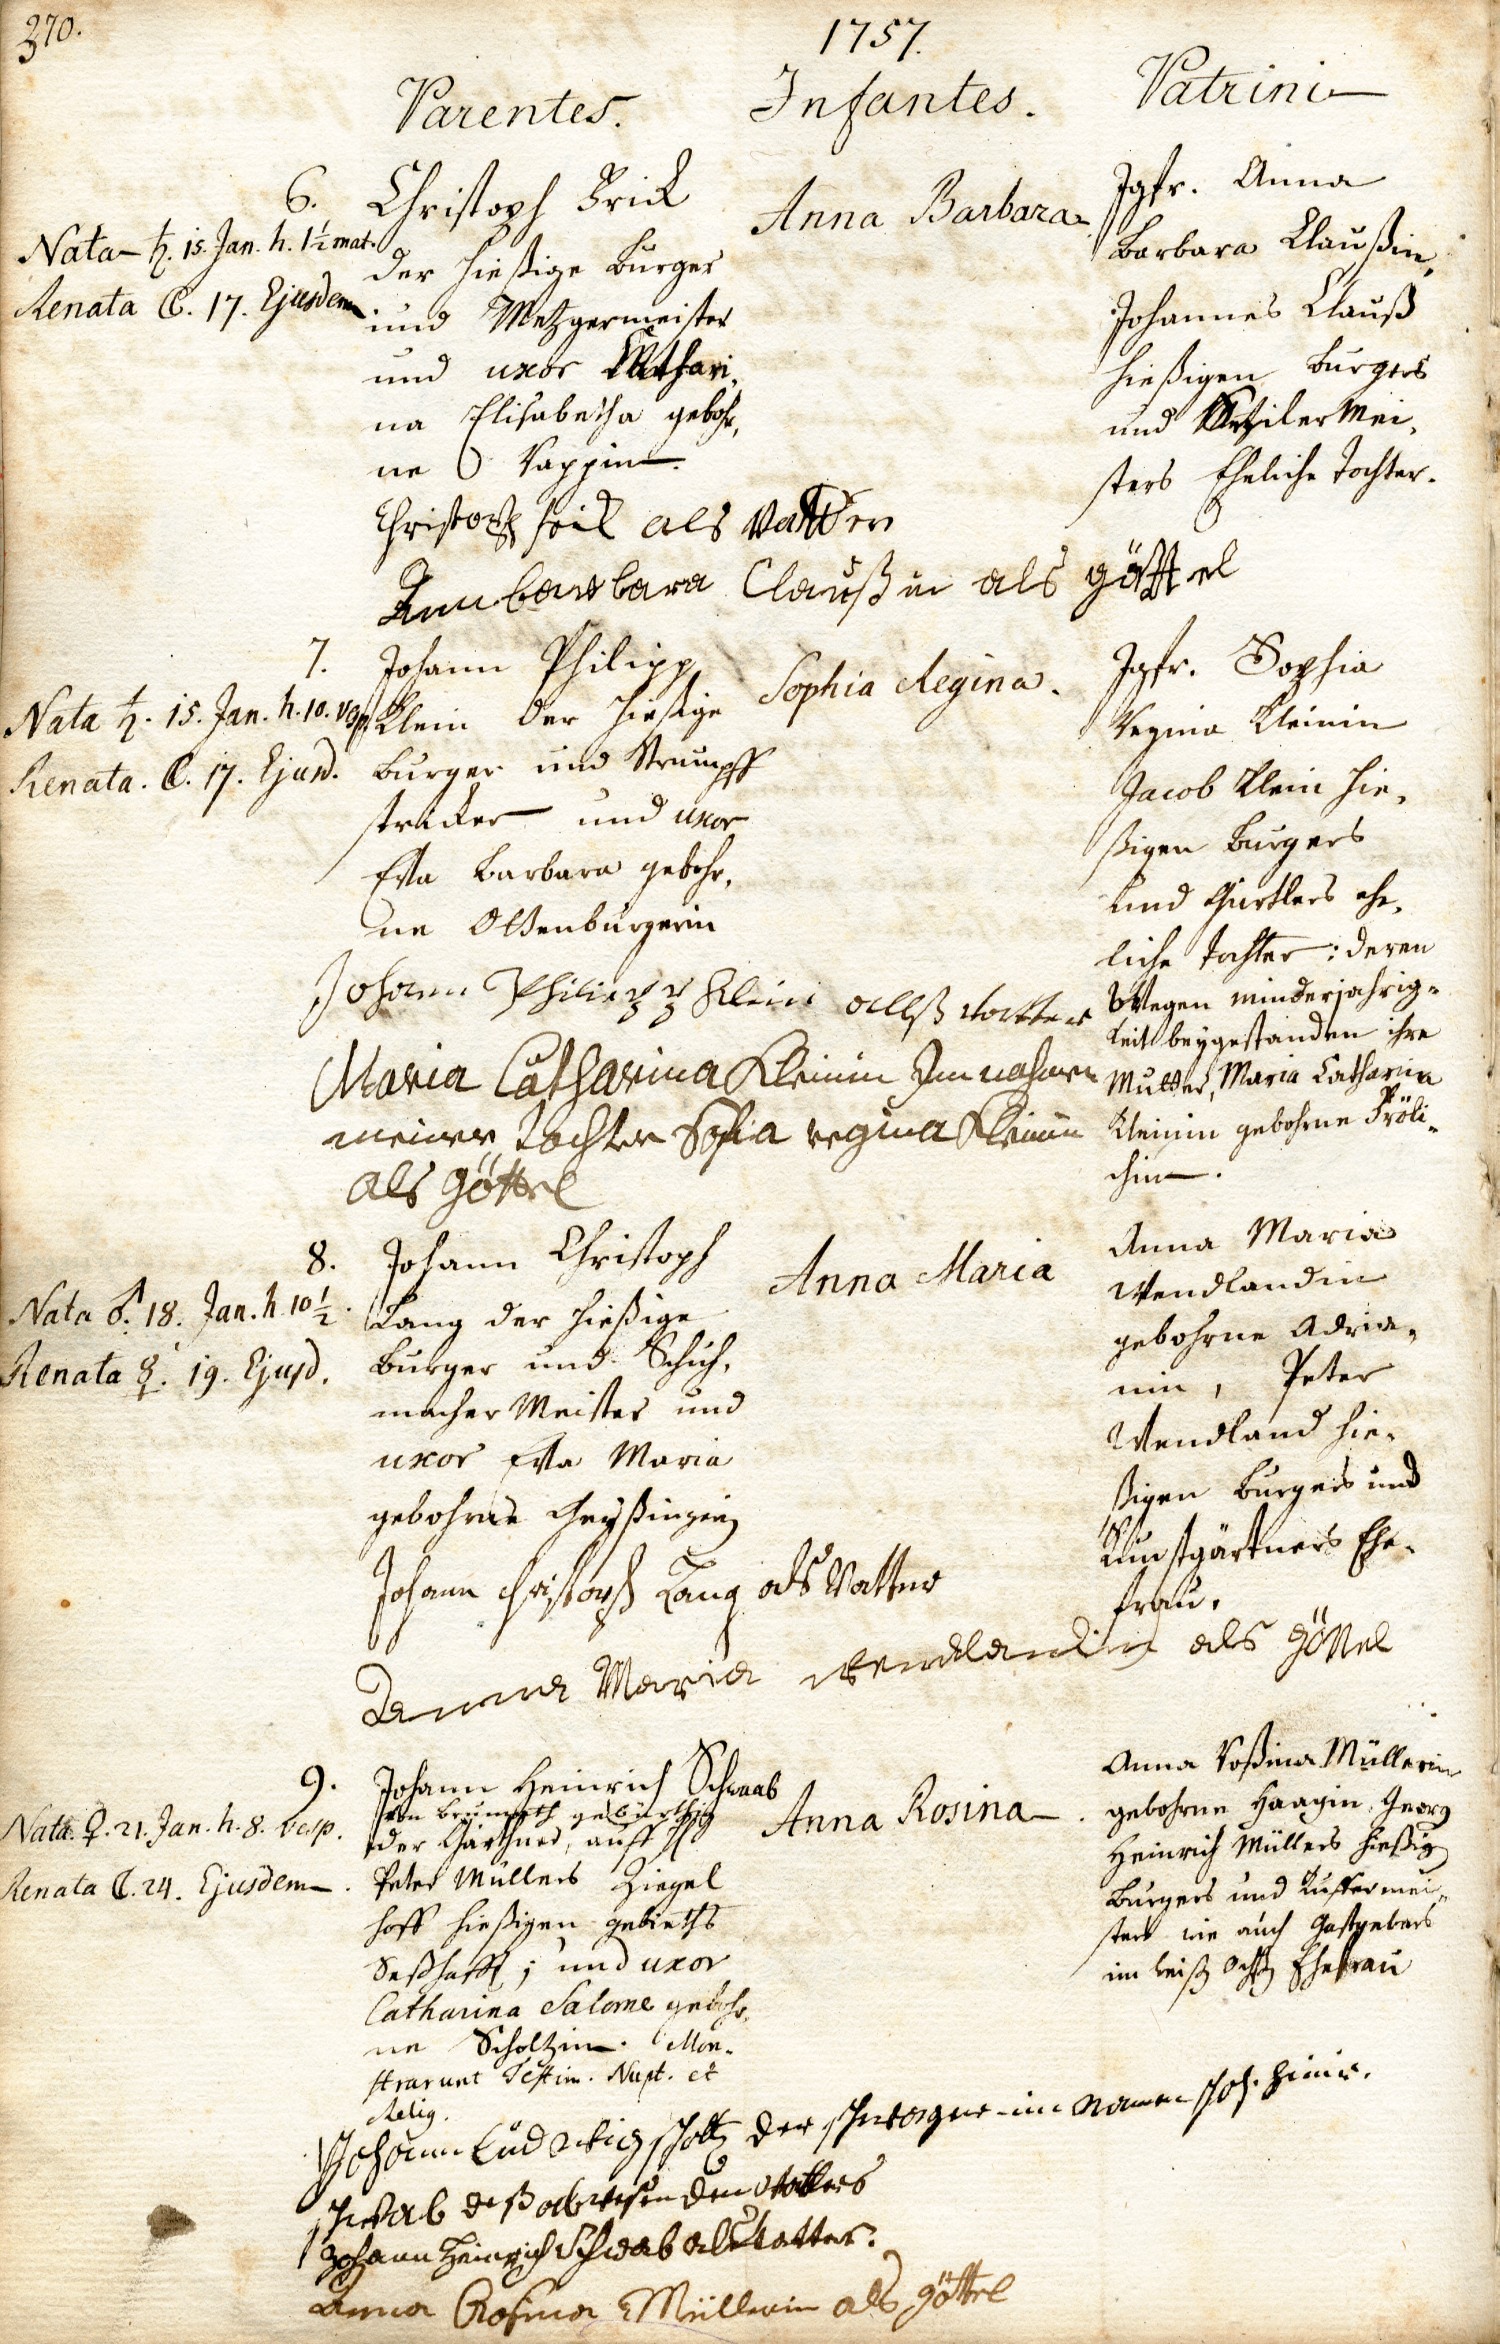 370.
1757.
Parentes. Infantes. Patrini
6.
Nata ♄. 15. Jan. h. 1½ mat.
Renata ☾. 17. Ejusdem
Christoph Frick
der hießige burger
und Metzgermeister
und uxor Cathari,
na Elisabetha gebohr,
ne Rappin.
Anna Barbara
Jgfr. Anna
Barbara Claußin,
Johannes Clauß
hießigen burgers
und Mei,
sters Eheliche Tochter.
Christoph als Vatter
Anna barbara Claußin als göttel
7.
Nata ♄. 15. Jan. h. 10. vesp.
Renata. ☾. 17. Ejusd.
Johann Philipp
Klein der hießige
burger und Strumpff
stricker und uxor
Eva Barbara gebohr,
ne Oldenburgerin
Sophia Regina.
Jgfr. Sophia
Regina Kleinin
Jacob Klein hie,
ßigen burgers
und Gürtlers ehe,
liche Tochter: deren
Wegen minderjahrig=
keit beygestanden ihre
Mutter, Maria Catharina
Kleinin gebohrne Fröli=
chin.
Johann Philipp Klein allß vatter
Maria Catharina Kleinin Im nahmen
meiner Tochter Sofia regina Kleinin
als Göttel
8.
Nata ♂. 18. Jan. h. 10½.
Renata ☿. 19. Ejusd.
Johann Christoph
Lang der hießige
burger und Schuh,
macher Meister und
uxor Eva Maria
gebohrne
Anna Maria
Anna Maria
Wendlandin
gebohrne Adria=
nin, Peter
Wendland hie=
ßigen burgers und
Kunstgärtners Ehe=
frau.
Johann christoph Lang als Vatter
Danna Maria wendlandin als Göttel
9.
Nata. ♀. 21. Jan. h. 8. vesp.
Renata ☾. 24. Ejusdem.
Johann Heinrich Schwab
von Brumath gebürthig
der Gärthner, auff
Peter Müllers Ziegel
hoff hießigen gebieths
Seßhafft; und uxor
Catharina Salome gebohr,
ne Scholtzin. Mon=
strarunt Testim. Nupt. et
Relig.
Anna Rosina.
Anna Roßina Müllerin
gebohrne Haagin, Georg
Heinrich Müllers hießig
burgers und Kuffermei=
sters wie auch Gastgebers
im Ehefrau
Johann Ludwig scholtz der schwager im namen Joh. Heinr.
schwab deß abwesenden vatters
Johann Heinrich Schwab als Vatter.
Anna Rosina Müllerin als Göttel